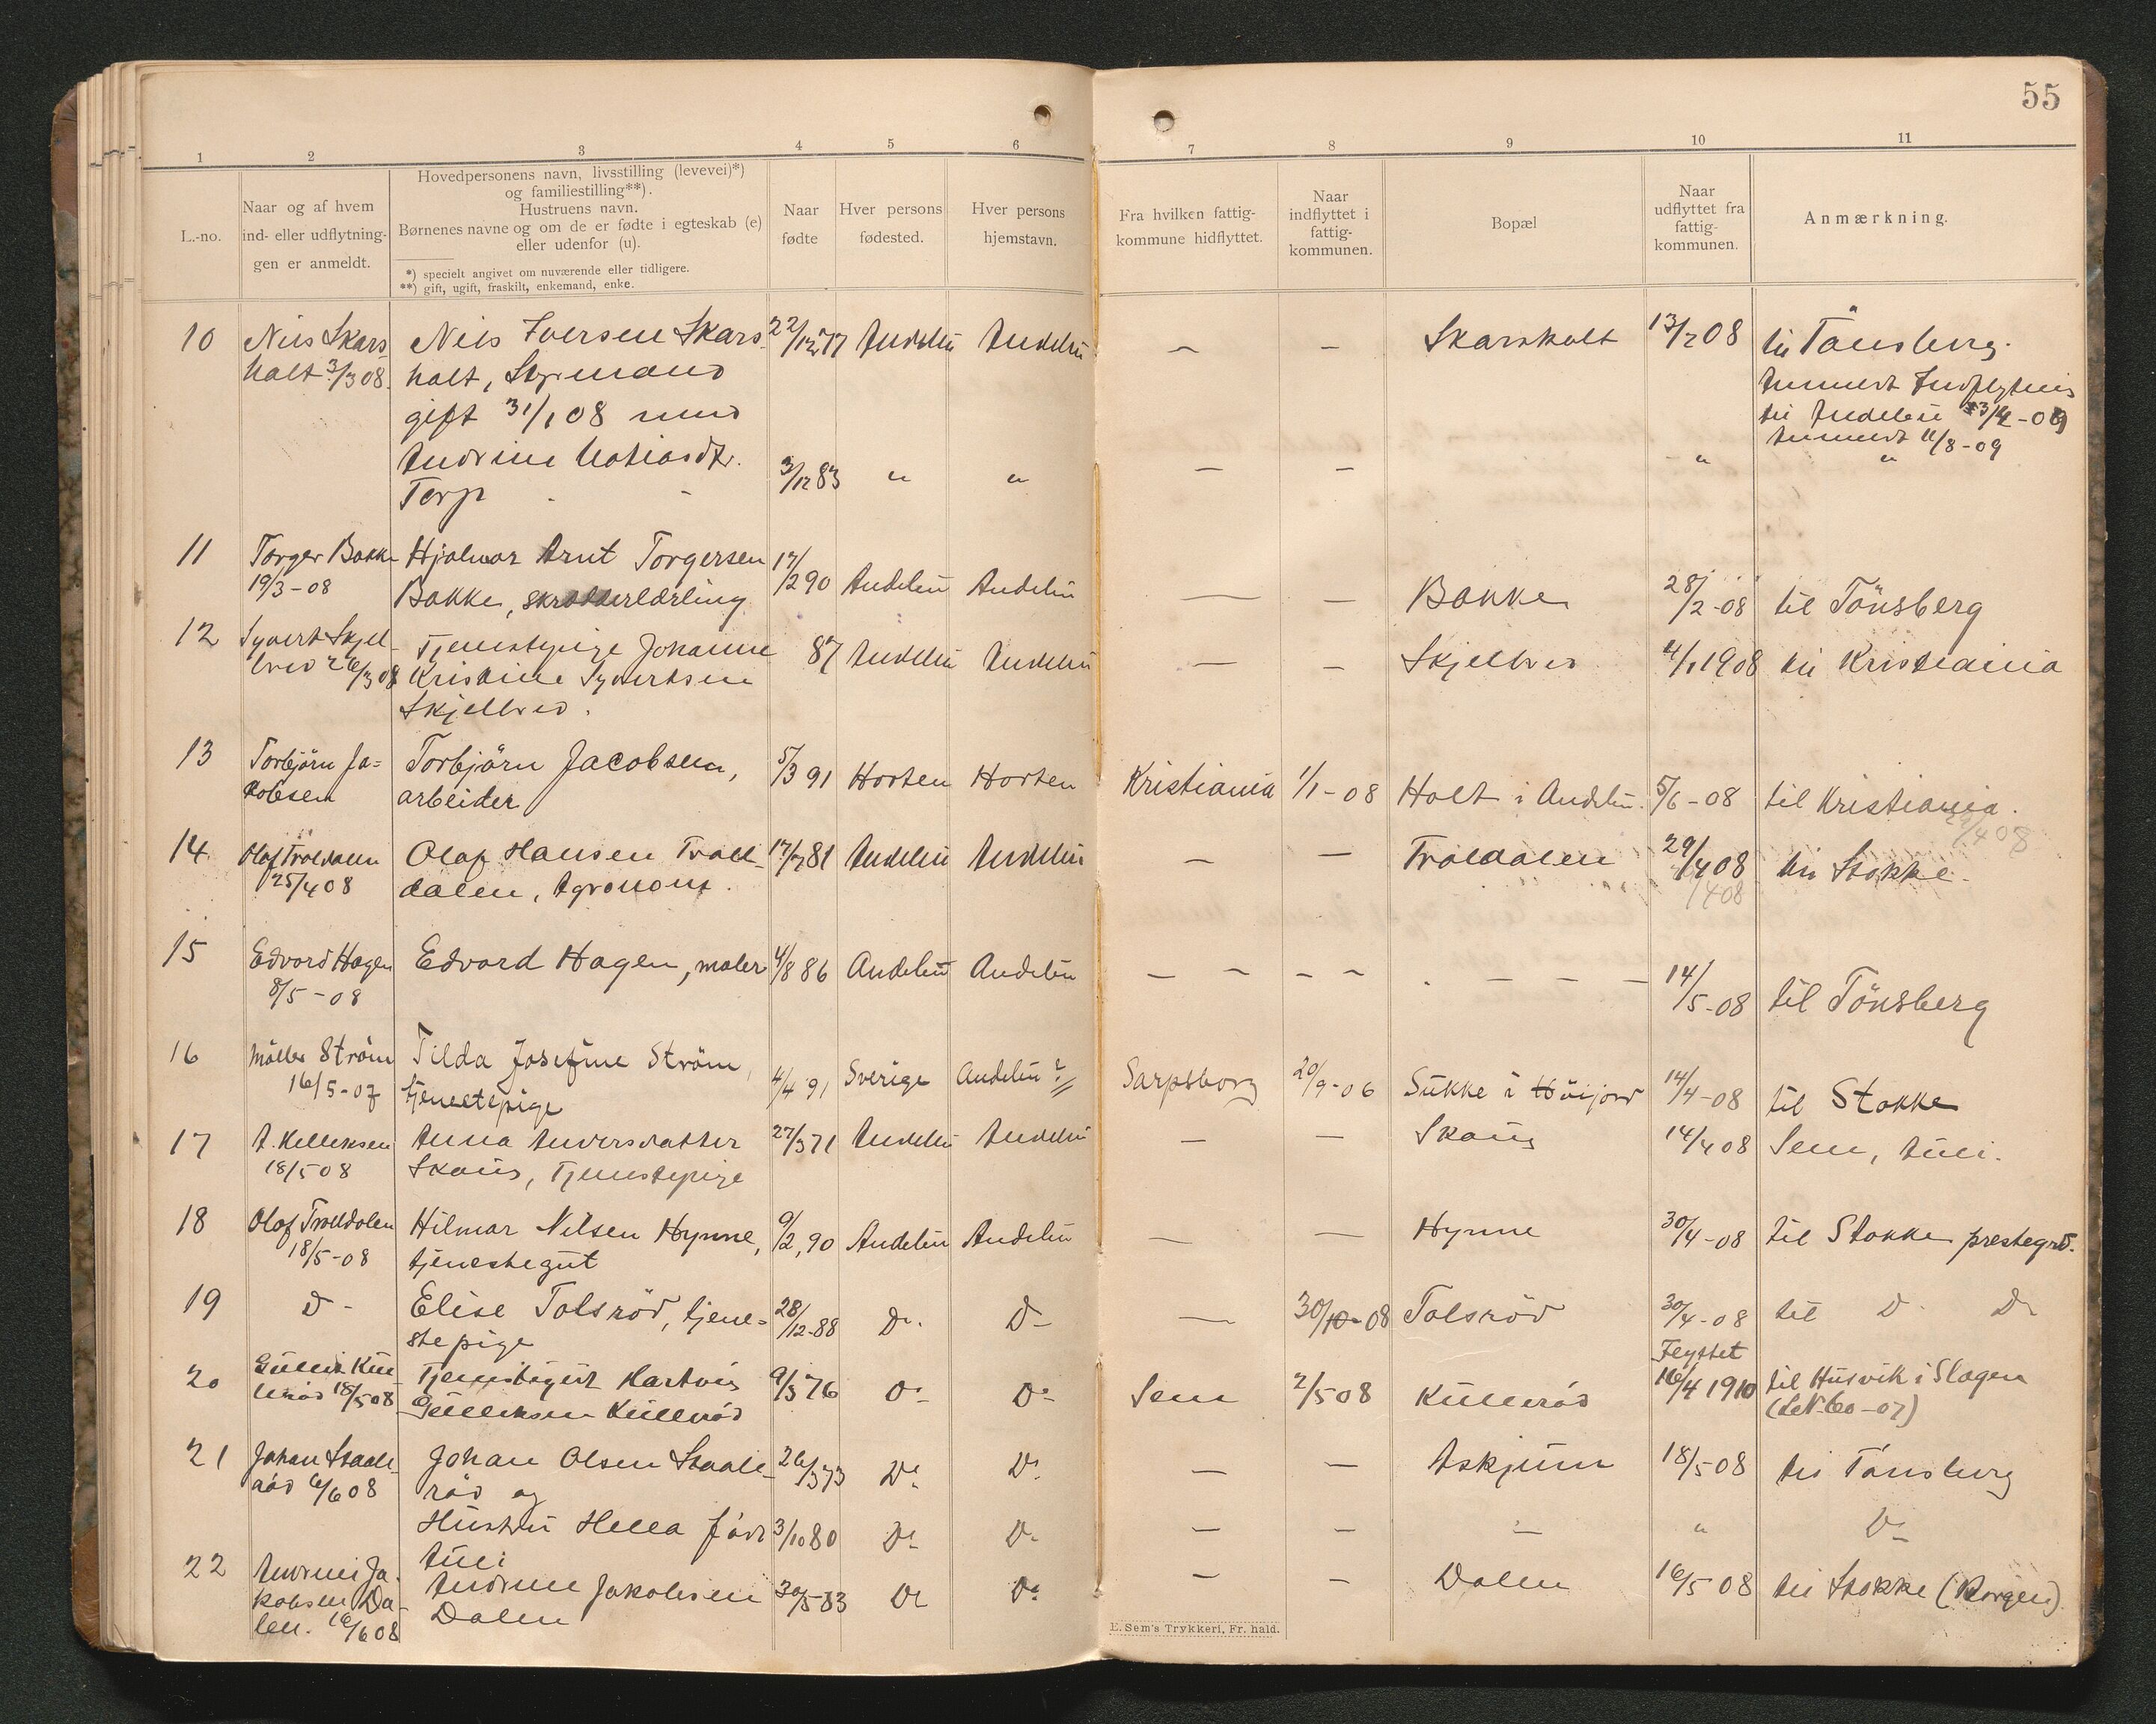 55
1 2 3 4 5 6 7 8 9 10 11
L.-no.
Naar og af hvem
ind- eller udflytnin-
gen er anmeldt.
Hovedpersonens navn, livsstilling (levevei)*)
og familiestilling**).
Hustruens navn.
Børnenes navne og om de er fødte i egteskab (e)
eller udenfor (u).
*) specielt angivet om nuværende eller tidligere.
**) gift, ugift, fraskilt, enkemand, enke.
Naar
fødte
Hver persons
fødested.
Hver persons
hjemstavn.
Fra hvilken fattig-
kommune hidflyttet.
Naar
indflyttet i
fattig-
kommunen.
Bopæl
Naar
udflyttet fra
fattig-
kommunen.
Anmærkning.
10 Nils Skars- Nils Iversen Skars- 22/12 77 Andebu Andebu — — Skarsholt 13/2 08 til Tönsberg.
holt 3/3 08. holt, Styrmand
gift 31/1 08 med til Andebu
Andrine Mathiasdtr. 3/12 83 " " — — " 11/8-09 "
Torp
11 Torger Bakke Hjalmar Arnt Torgersen 17/
19/3-08 Bakke, skrædderlærling 2 90 Andebu Andebu — — Bakke 28/2-08 til Tönsberg
12 Syvert Skjel- Tjenestepige Johanne 87 Andebu Andebu — — Skjelbred 4/1 1908 til Kristiania
bred 26/3 08 Kristine Syvertsen
Skjelbred.
13 Torbjörn Ja= Torbjörn Jacobsen, 5/3 91 Horten Horten Kristiania 1/1-08 Holt i Andebu. 5/6-08 til Kristiania.
kobsen arbeider
14 Olaf Troldalen Olaf Hansen Troll- 17/7 81 Andebu Andebu — — Troldalen 29/4 08 til Stokke.
25/4 08 dalen, Agronom.
15 Edvard Hagen Edvard Hagen, maler 4/8 86 Andebu Andebu — — — — — — — 14/5-08 til Tönsberg
8/5-08
16 Möller Ström Tilda Josefine Ström, 4/4 91 Sverige Andebu? Sarpsborg 20/9-06 Sukke i Höijord 14/4-08 til Stokke
16/5-07 tjenestepige
17 A. Kelleksen Anna Andersdatter 27/3 71 Andebu Andebu — — Skoug 14/4 08 Sem, Auli.
18/5 08 Skoug, Tjenestepige
18 Olaf Trolldalen Hilmar Nilsen Hynne, 9/2, 90 Andebu Andebu — — Hynne 30/4-08 til Stokke prestegrd.
18/5-08 tjenestegut
19 D- Elise Tolsröd, tjene= 28/12-88 Do. D- — 30/10-08 Tolsröd 30/4-08 til D- Do
stepige
20 Tjenestegut Hartvig 9/3 76 Do D- Sem 2/5 08 Kullerød Flyttet 16/4 1910 til Husvik i Slagen
18/5 08 Gulliksen Kullerød (LN 60-07)
21 Johan Staale- Johan Olsen Staale- 26/3 73 Do. Do. — — Askjum 18/5 08 til Tönsberg
röd 6/6 08 röd og
Hustru Hella född 3/10 80 Do. Do. — — — " Do
Auli
22 Andrine Ja- Andrine Jakobsen 30/5 83 Do Do. — — Dalen 16/5 08 til Stokke (Borgen)
kobsen Da- Dalen
len. 16/6 08
E. Sem's Trykkeri, Fr. hald.